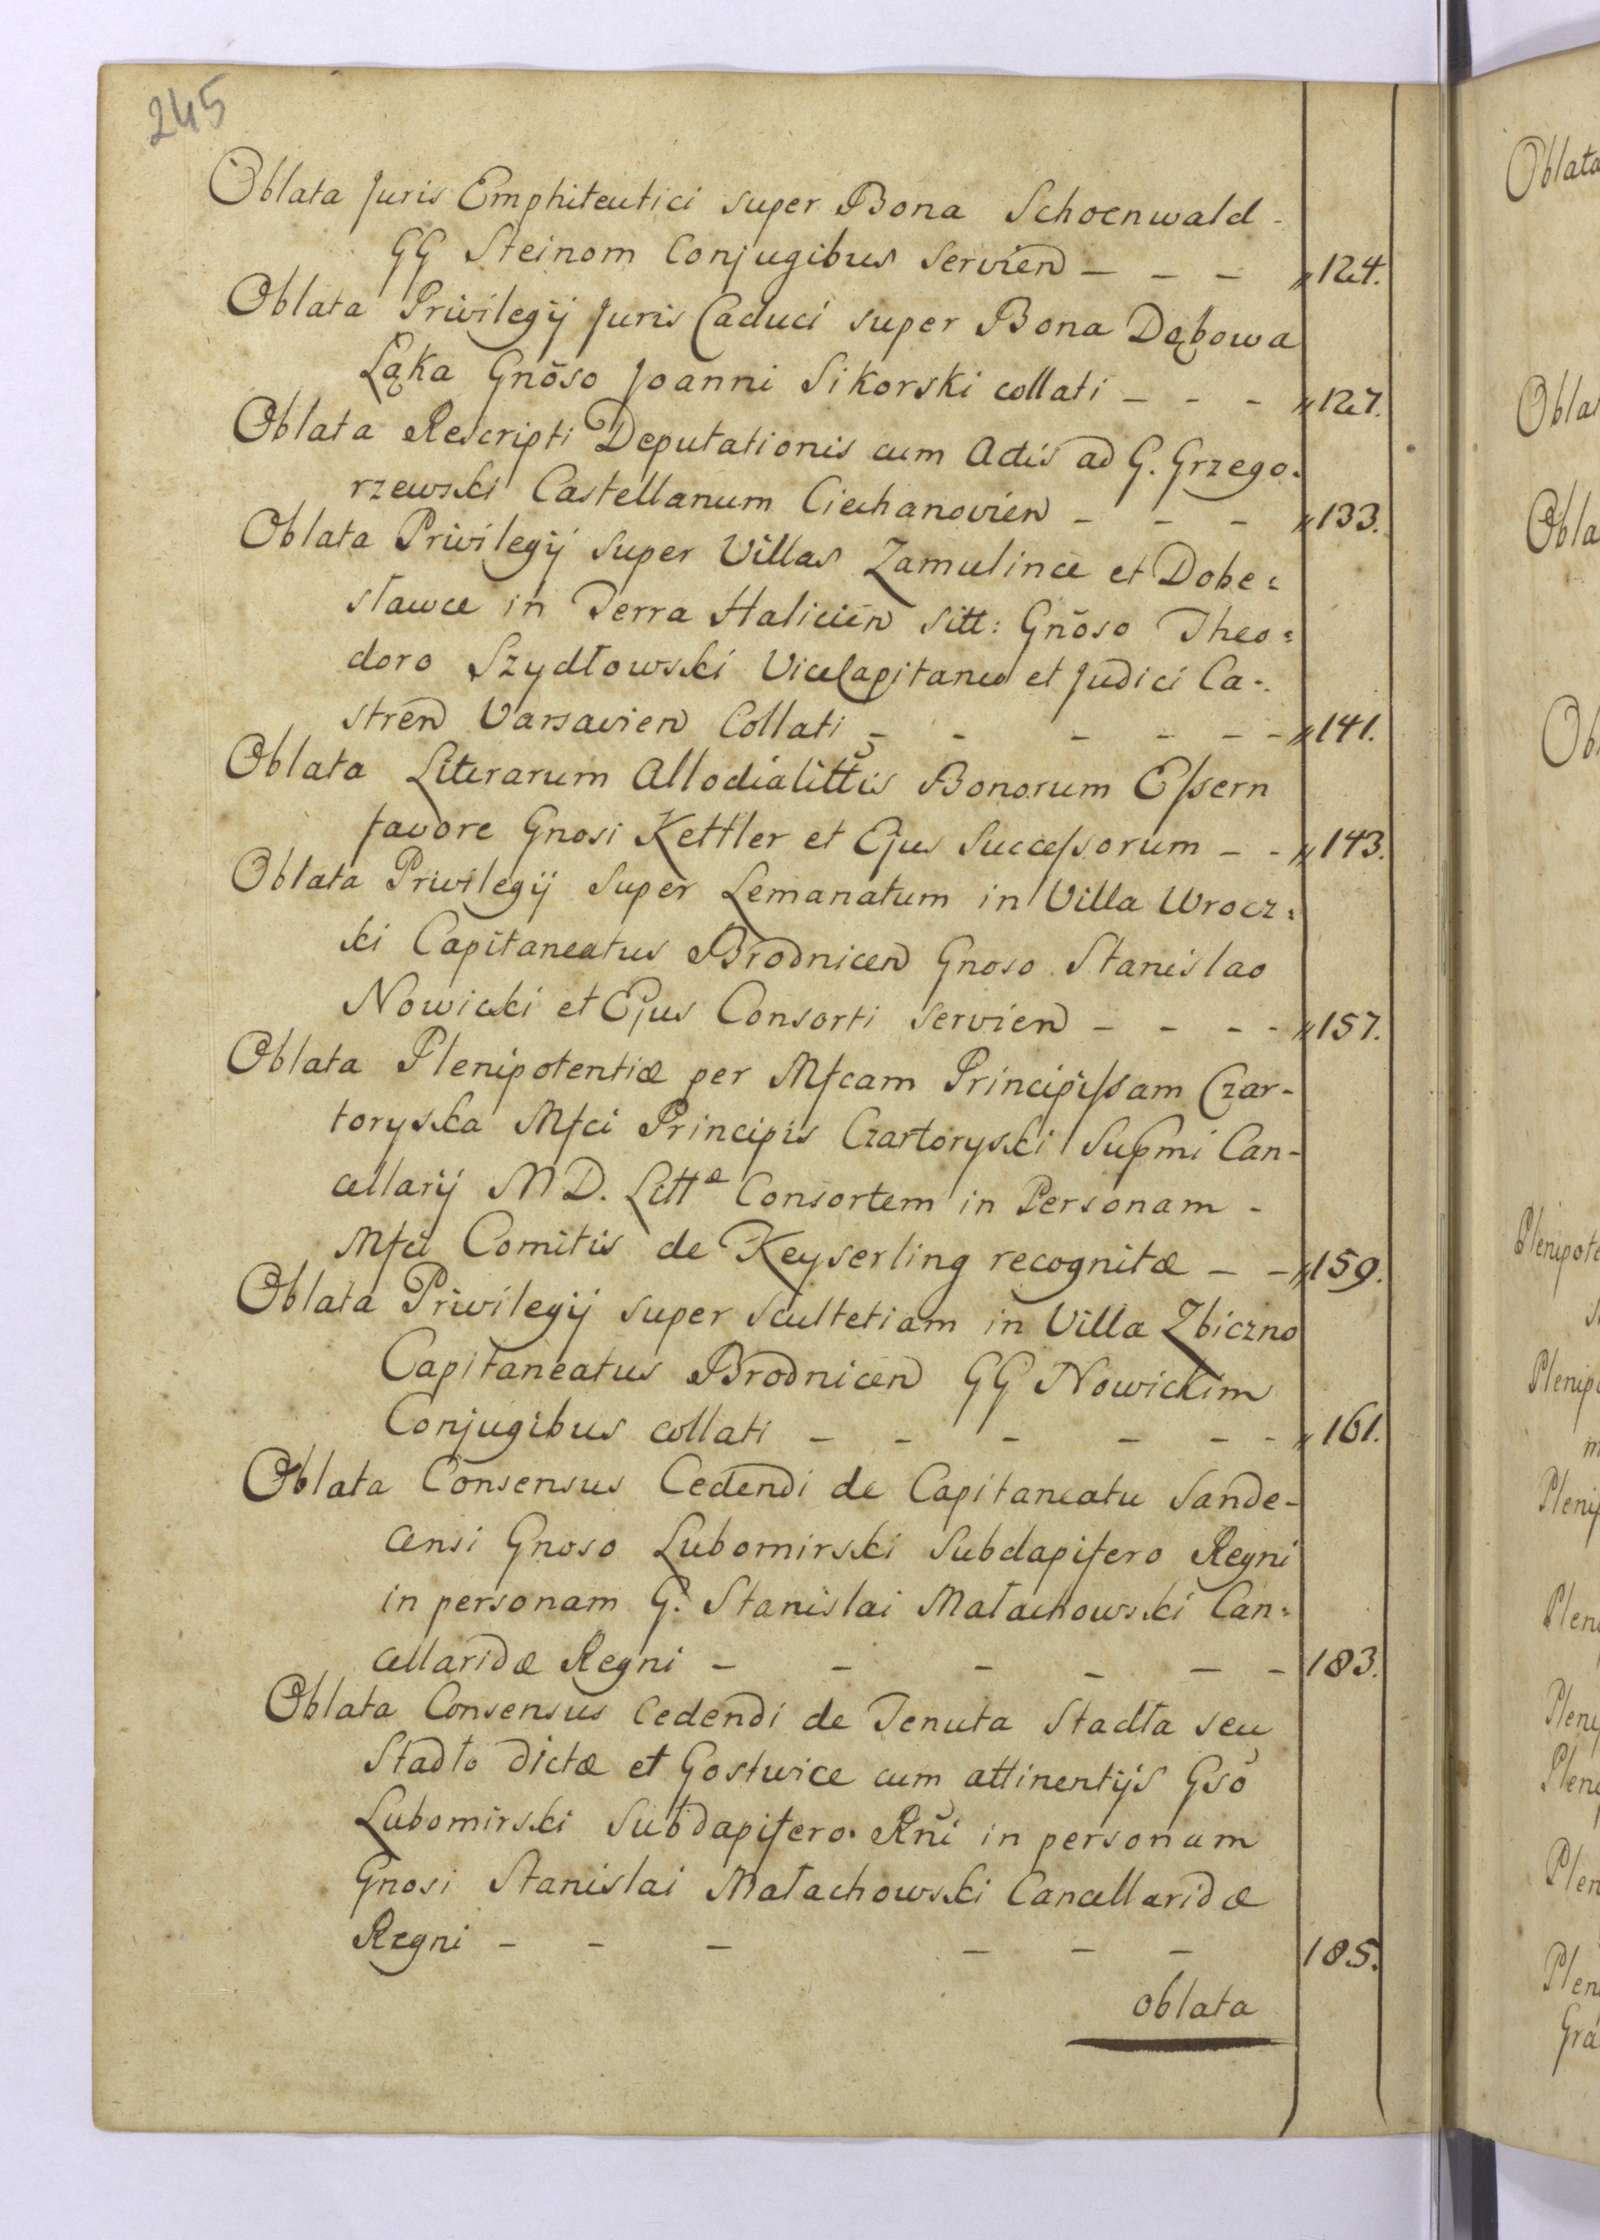 245
Oblata Juris Emphiteutici super Bona Schoenwald -
GG Steinom Conjugibus Servien̄ - - - „124.
Oblata Privilegij Juris Caduci super Bona Dąbowa
Ląka Gnõso Joanni Sikorski collati - - - „127.
Oblata Rescripti Deputationis cum Actis ad G. Grzego-
rzewski Castellanum Ciechanovien̄ - - - „133.
Oblata Privilegij super Villas Zamulince et Dobe=
sławce in Terra Halicien̄ sitt: Gnõso Theo=
doro Szydłowski ViceCapitaneo et Judici Ca-
stren̄ Varsavien̄ Collati - - - - - - „141.
Oblata Literarum Allodialittis Bonorum Essern
favore Gnosi Kettler et Ejus Successorum - - „143.
Oblata Privilegij super Lemanatum in Villa Wrocz=
ki Capitaneatus Brodnicen̄ Gnoso Stanislao
Nowicki et Ejus Consorti servien̄ - - - - „157.
Oblata Plenipotentiæ per Mfcam Principissam Czar-
toryska Mfci Principis Czartoryski Supmi Can-
cellarij M D. Littæ Consortem in Personam -
Mfci Comitis de Keyserling recognitæ - - „159.
Oblata Privilegij super scultetiam in Villa Zbiczno
Capitaneatus Brodnicen̄ GG Nowickim
Conjugibus collati - - - - - - „161.
Oblata Consensus Cedendi de Capitaneatu Sande-
censi Gnoso Lubomirski Subdapifero Regni
in personam G. Stanislai Małachowski Can=
cellaridæ Regni - - - - - - 183.
Oblata Consensus Cedendi de Tenuta Stadła seu
Stadło dictæ et Gostwice cum attinentijs Gsõ
Lubomirski Subdapifero Rñi in personam
Gnosi Stanislai Małachowski Cancellaridæ
Regni - - - - - - 185.
oblata
Oblata
Obla
Obla
Ob
Plenipote
Plenip
Pleni
Plen
Pleny
Plen
Plen
Plen
Gra